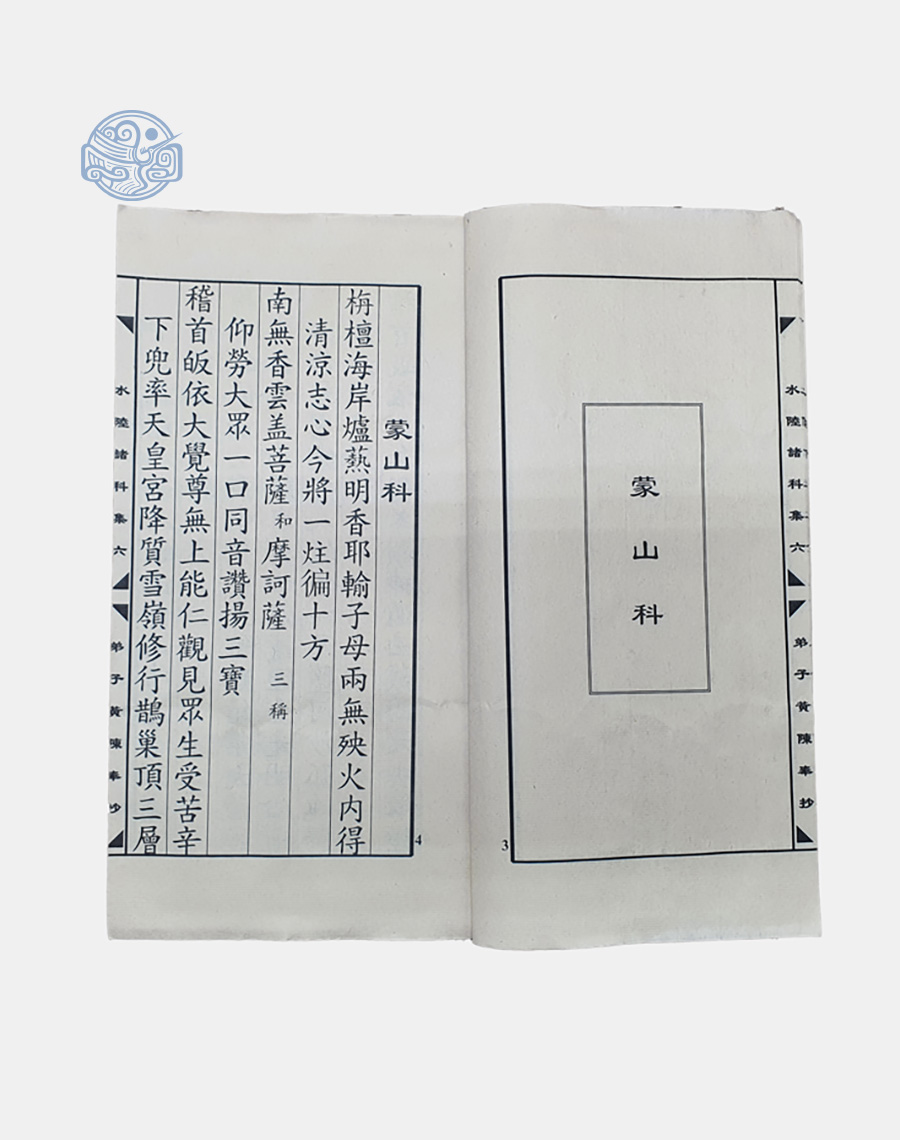 水陸諸科集六
弟子黃陳奉抄
蒙山科
3
蒙山科
栴檀海岸爐爇明香耶輸子母兩無殃火内得
清涼志心今將一炷徧十方
南無香雲盖菩薩和摩訶薩 三稱
仰勞大眾一口同音讚揚三寶
稽首皈依大覺尊無上能仁觀見眾生受苦辛
下兜率天皇宮降質雪嶺修行鵲巢頂三層
4
水陸諸科集六
弟子黃陳奉抄